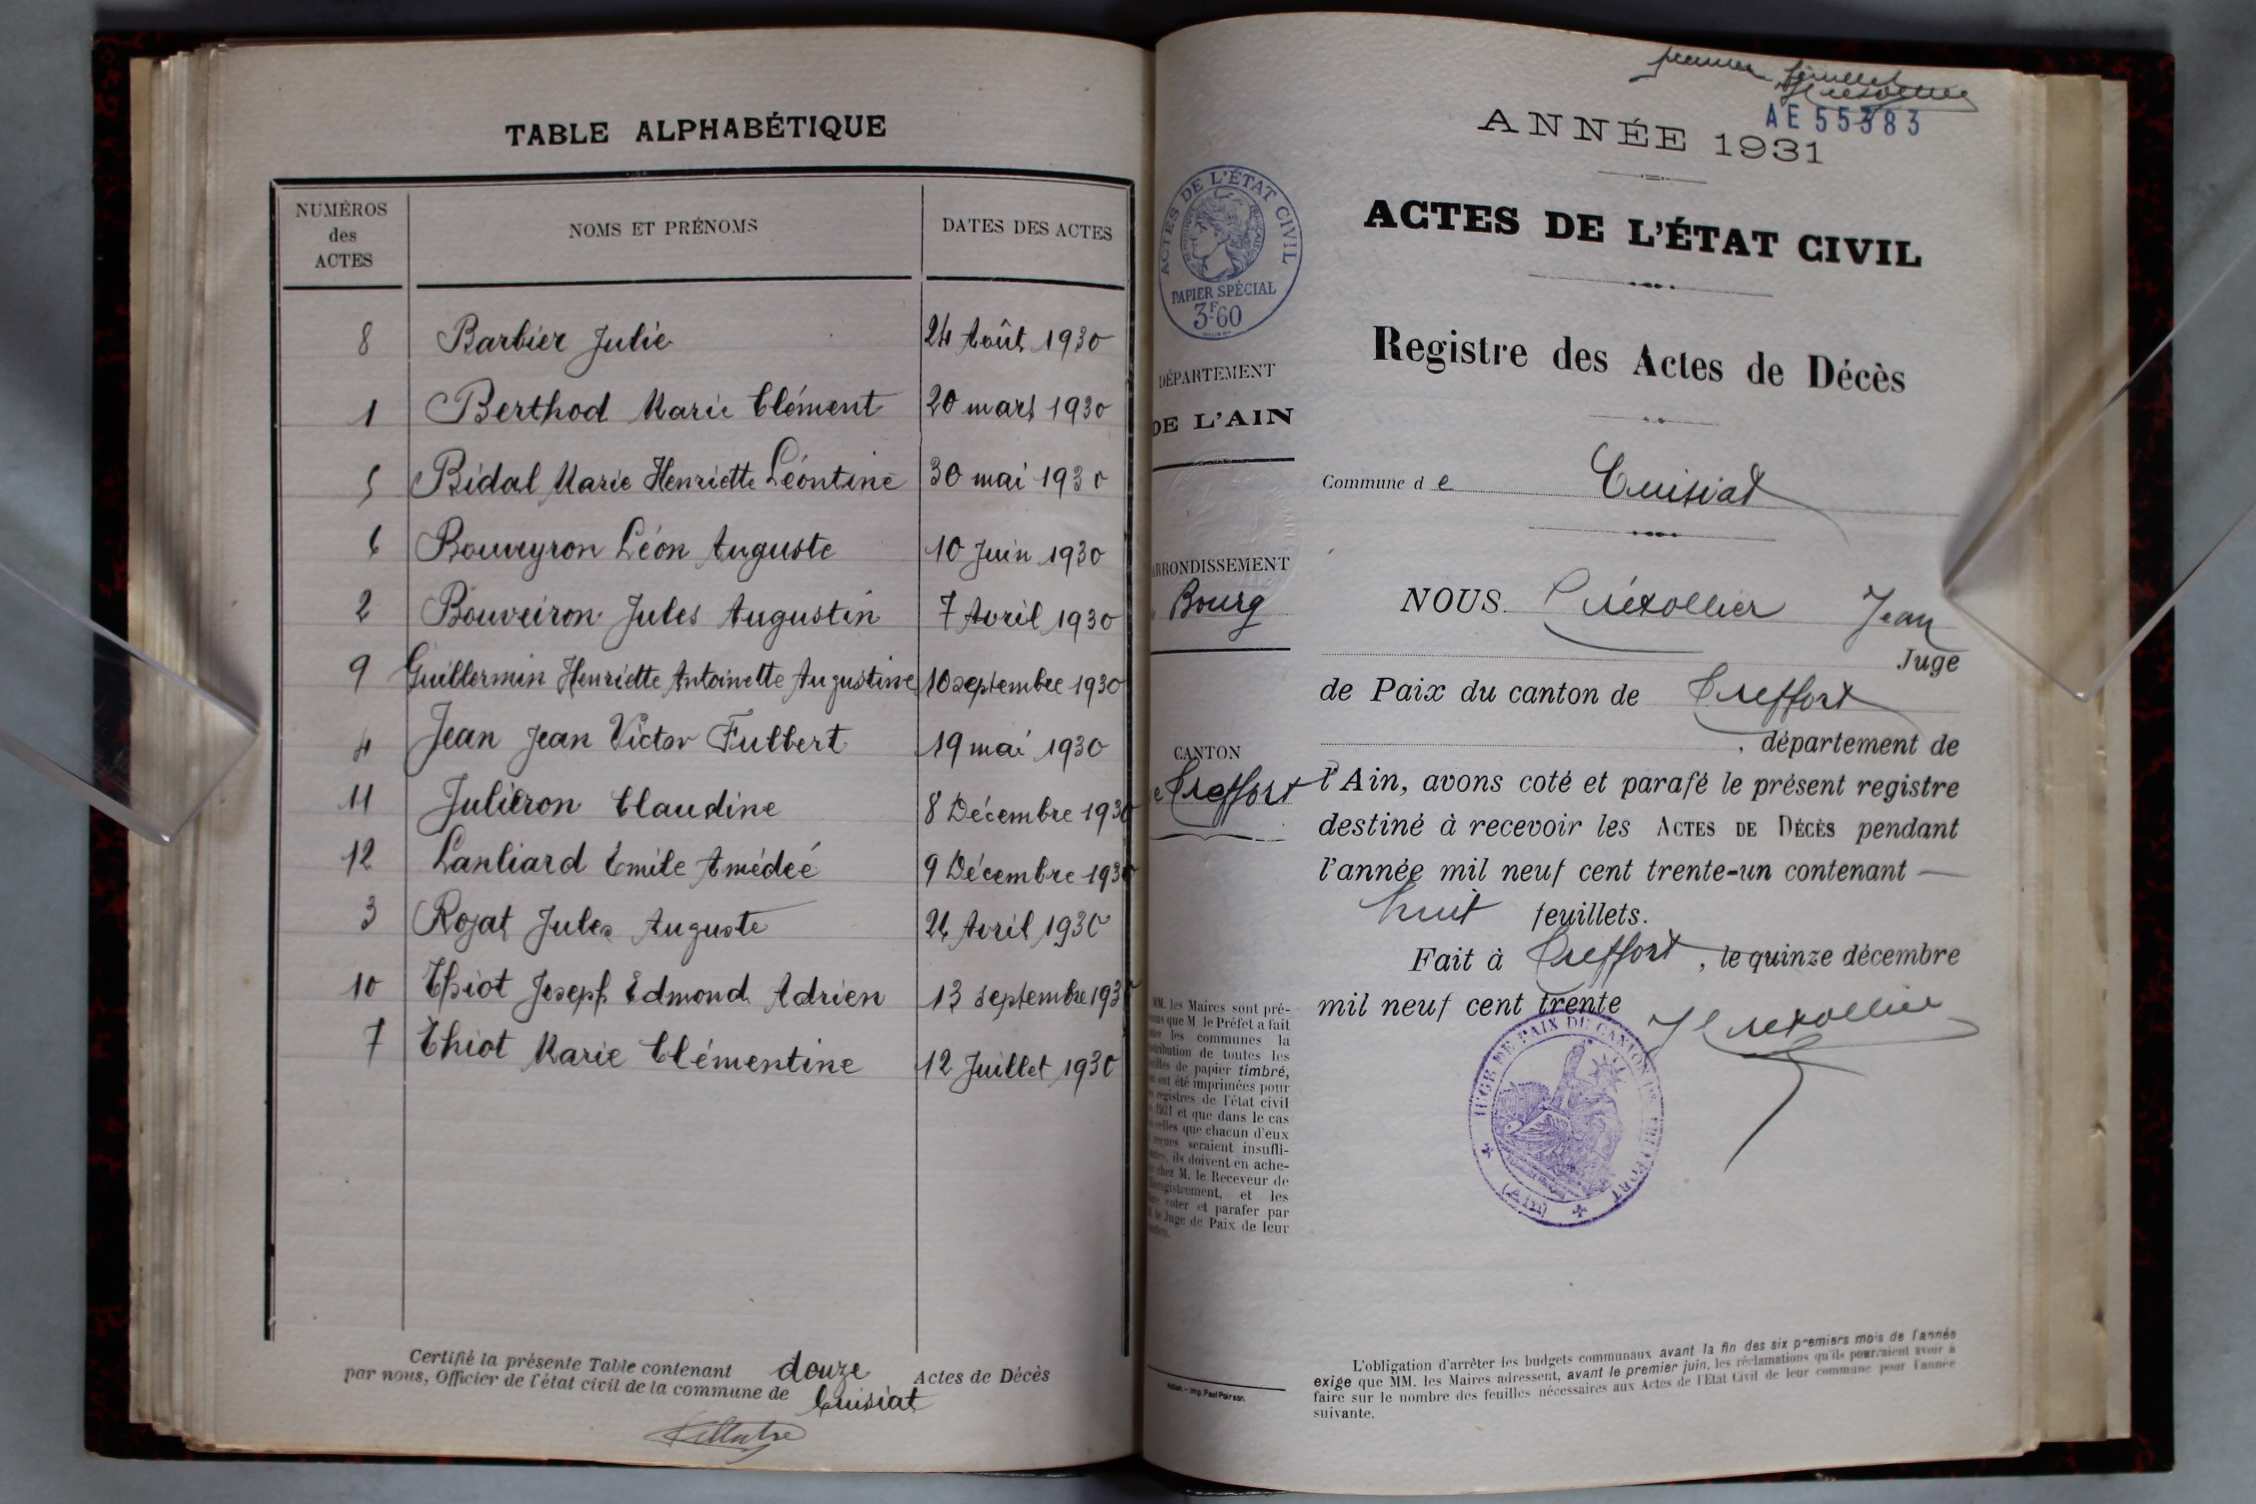 TABLE ALPHABÉTIQUE
NUMÉROS des ACTES
NOMS ET PRÉNOMS
DATES DES ACTES
8 Barbier Julie 24 Août 1930
1 Berthod Marie Clément 20 mars 1930
5 Bidal Marie Henriette Léontine 30 mai 1930
6 Bouveyron Léon Auguste 10 Juin 1930
2 Bouveiron Jules Augustin 7 Avril 1930
9 Guillermin Henriette Antoinette Augustine 10 septembre 1930
4 Jean Jean Victor Fulbert 19 mai 1930
11 Juliéron Claudine 8 Décembre 1930
12 Lanliard Emile Amédeé 9 Décembre 1930
3 Rojat Jules Auguste 24 Avril 1930
10 Thiot Joseph Edmond Adrien 13 septembre 193
7 Thiot Marie Clémentine 12 Juillet 1930
Certifié la présente Table contenant douze Actes de Décès
par nous, Officier de l'état civil de la commune de Cuisiat
premier feuillet
AE 55383
ANNÉE 1931
ACTES DE L'ÉTAT CIVIL
Registre des Actes de Décès
ACTES DE L'ÉTAT CIVIL
PAPIER SPÉCIAL
3F60
DÉPARTEMENT
DE L'AIN
ARRONDISSEMENT
Bourg
CANTON
e Treffort
MM. les Maires sont pré-
que M. le Préfet a fait
les communes la
de toutes les
de papier timbré,
ont été imprimées pour
registres de l'état civil
1931 et que dans le cas
celles que chacun d'eux
reçues seraient insuffi-
ils doivent en ache-
chez M. le Receveur de
et les
coter et parafer par
le Juge de Paix de leur
Commune de Cuisiat
NOUS Jean
Juge
de Paix du canton de Treffort
, département de
l'Ain, avons coté et parafé le présent registre
destiné à recevoir les ACTES DE DÉCÈS pendant
l'année mil neuf cent trente-un contenant —
huit feuillets.
Fait à Treffort, le quinze décembre
mil neuf cent trente
JUGE DE PAIX DU CANTON DE TREFFORT
(Ain)
L'obligation d'arrêter les budgets communaux avant la fin des six premiers mois de l'année
exige que MM. les Maires adressent, avant le premier juin, les réclamations qu'ils pourraient avoir à
faire sur le nombre des feuilles nécessaires aux Actes de l'Etat Civil de leur commune pour l'année
suivante.